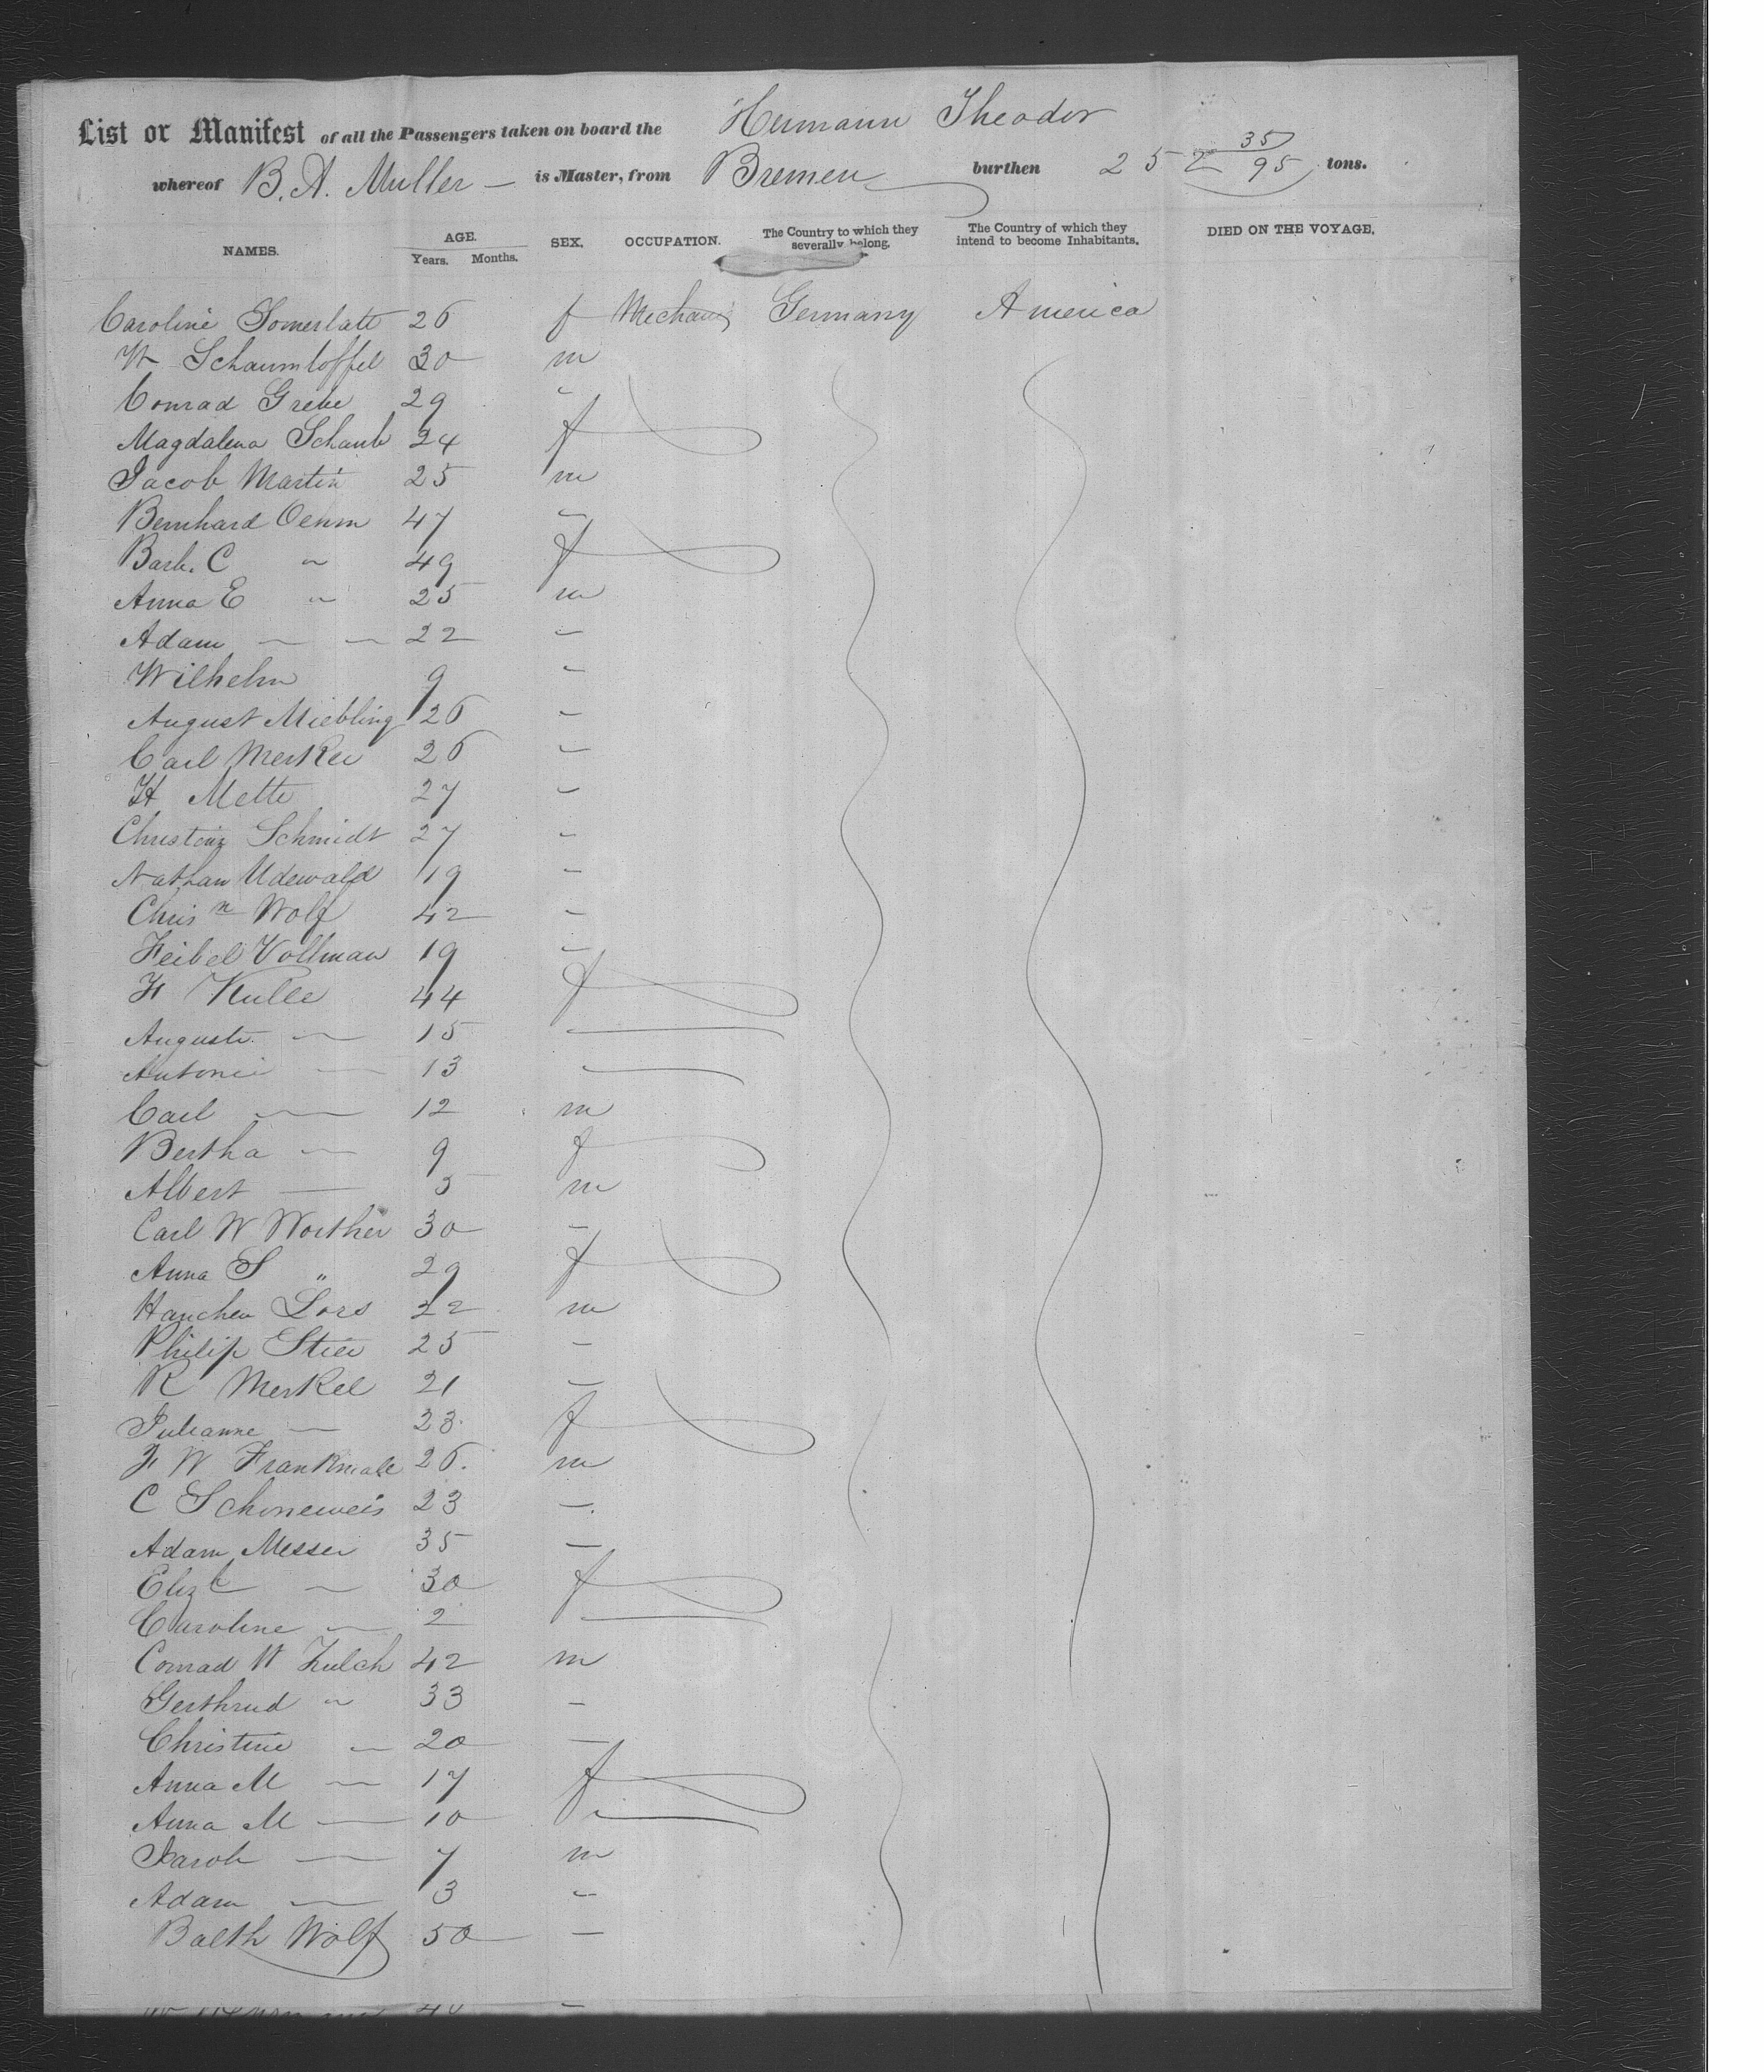 List or Manifest of all the Passengers taken on board the Hermann Theodor
whereof B. A. Muller — is Master, from Bremen burthen 252 35/95 tons.
NAMES. AGE. Years. Months. SEX. OCCUPATION. The Country to which they severally belong. The Country of which they intend to become Inhabitants. DIED ON THE VOYAGE.
Caroline 26 f Mechanic Germany America
W Schaumloffel 30 m
Conrad Grebe 29 "
Magdalena Schaub 24 f
Jacob Martin 25 m
Bernhard Oehm 47 "
Barb. C " 49 f
Anna E " 25 m
Adam — — 22 "
Wilhelm 9 "
August Miebling 26 "
Carl Merker 26 "
H Mette 27 "
Christine Schmidt 27 "
Nathan Udewald 19 "
Chrisn Wolf 42 "
Feibel Vollman 19 "
F Kulle 44 f
Auguste — 15 —
Antonie — 13 —
Carl — 12 m
Bertha — 9 f
Albert — 5 m
Carl W Worther 30 —
Anna S " 29 f
Hanchen Lors 22 m
Philip Stier 25 —
R Merkel 21 —
Julianne — 23 f
F W 26. m
C Schoneweis 23 —.
Adam Messer 35 —
Elizb — 30 f
Caroline — 2 —
Conrad W Zulch 42 m
Gerthrud " 33 —
Christine — 20 —
Anna M — 17 f
Anna M — 10 —
Jacob — 7 m
Adam — 3 "
Balth Wolf 50 —